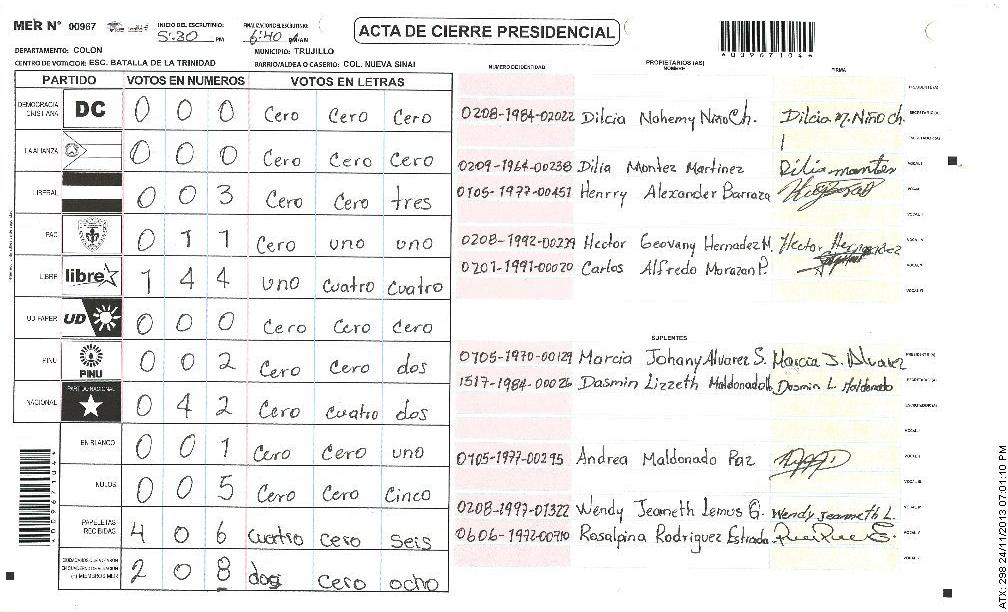 MER N° 00967 INICIO DEL ESCRUTINIO: 5:30 PM FINALIZACION DEL ESCRUTINIO: 6:40
ACTA DE CIERRE PRESIDENCIAL
DEPARTAMENTO: COLON MUNICIPIO: TRUJILLO
CENTRO DE VOTACION: ESC. BATALLA DE LA TRINIDAD BARRIO/ALDEA O CASERIO: COL. NUEVA SINAI
PARTIDO VOTOS EN NUMEROS VOTOS EN LETRAS
DEMOCRACIA CRISTIANA DC 0 0 0 Cero Cero Cero
LA ALIANZA 0 0 0 Cero Cero Cero
LIBERAL 0 0 3 Cero Cero tres
PAC 0 1 1 Cero uno uno
LIBRE libre 1 4 4 uno cuatro cuatro
UD FAPER UD 0 0 0 Cero Cero Cero
PINU PINU 0 0 2 Cero Cero dos
NACIONAL PARTIDO NACIONAL 0 4 2 Cero cuatro dos
EN BLANCO 0 0 1 Cero Cero uno
NULOS 0 0 5 Cero Cero Cinco
PAPELETAS RECIBIDAS 4 0 6 cuatro cero seis
MIEMBROS MER 2 0 8 dos cero ocho
NUMERO DE IDENTIDAD PROPIETARIOS (AS) NOMBRE FIRMA
*00967104*
0208-1984-02022 Dilcia Nohemy Niño Ch. Dilcia M. Niño Ch.
0209-1964-00238 Dilia Montez Martinez Dilia montes
0105-1977-00451 Henrry Alexander Barraza
0208-1992-00229 Hector Geovany Hernadez M. Hector Hernandez
0201-1991-00020 Carlos Alfredo Morazan P.
SUPLENTES
0105-1970-00129 Marcia Johany Alvarez S. Marcia J. Alvarez
1517-1984-00026 Dasmin Lizzeth Maldonado Dasmin L Maldonado
0105-1977-00295 Andrea Maldonado Paz
0208-1997-01322 Wendy Jeameth Lemus G. Wendy Jeanneth L.
0606-1972-00710 Rosalpina Rodriguez Estrada
*00967104*
ATX: 298 24/11/2013 07:01:10 PM